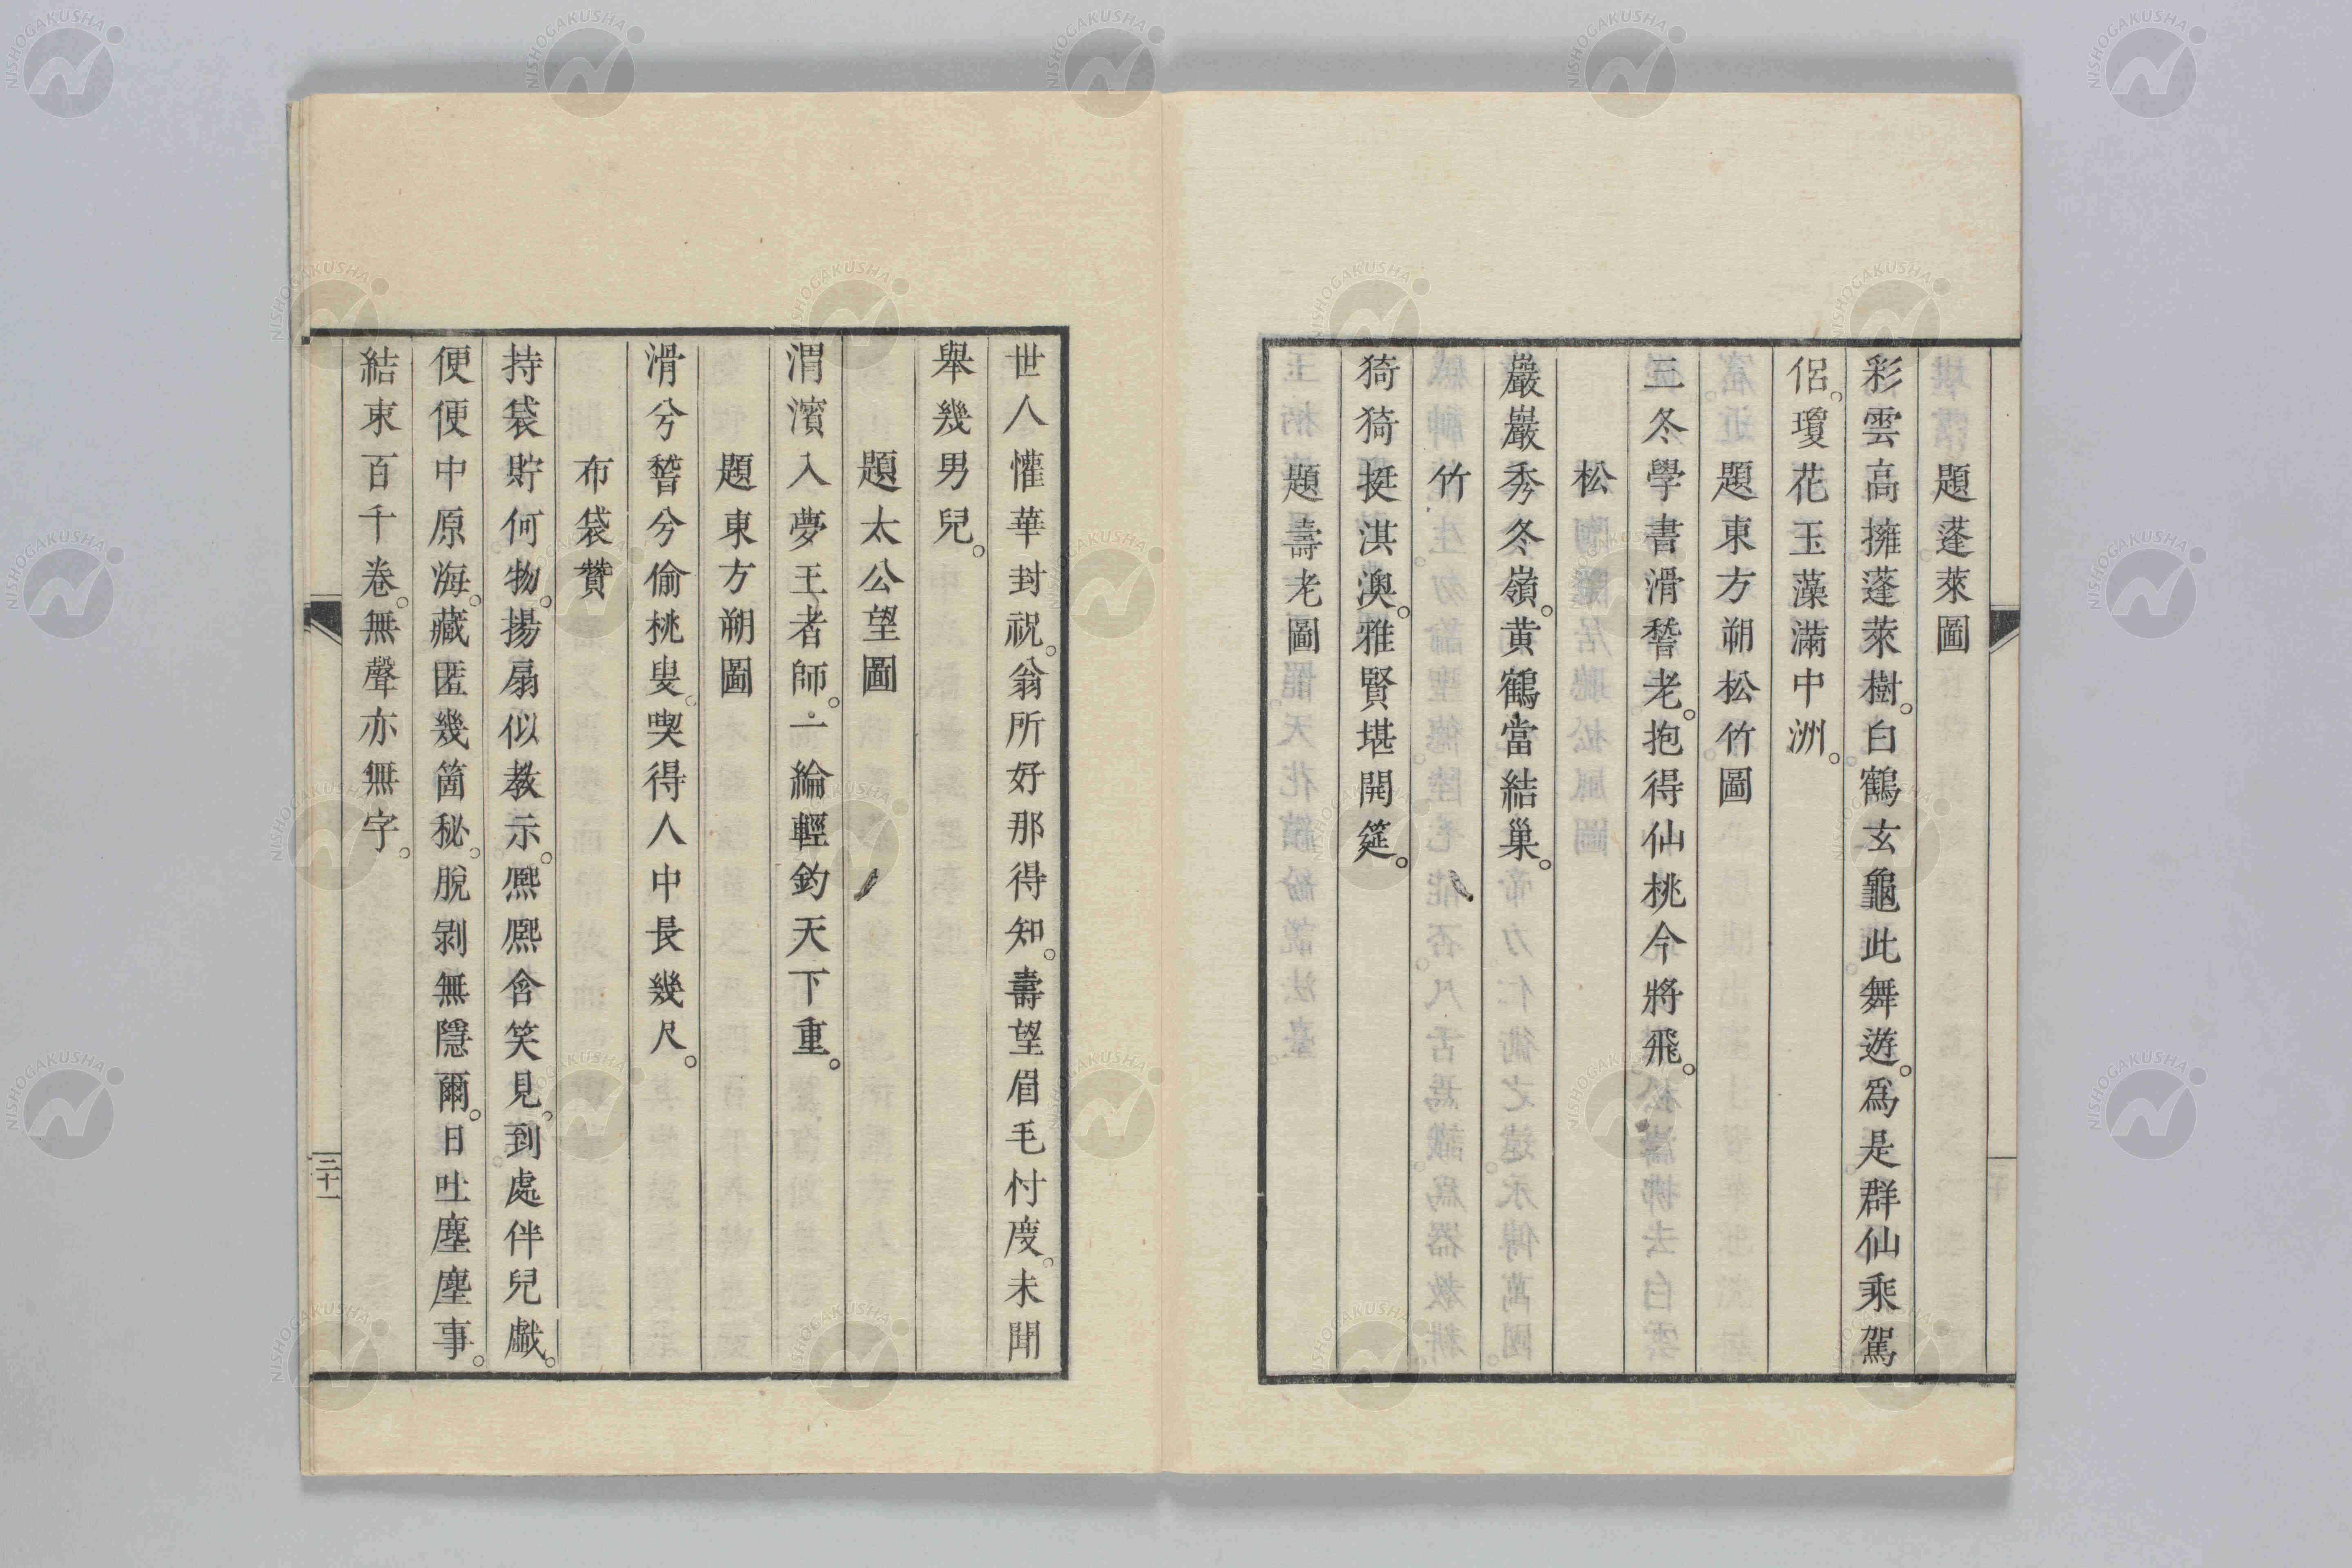 題蓬萊圖
彩雲高擁蓬萊樹。白鶴玄龜此舞遊。為是群仙乘駕
侶。瓊花玉藻滿中洲。
題東方朔松竹圖
三冬學書滑稽老。抱得仙桃今將飛。
松
巖巖秀冬嶺。黃鶴當結巢。
竹
猗猗挺淇澳。雅賢堪開筵。
題壽老圖
世人懽華封祝。翁所好那得知。壽望眉毛忖度。未聞
舉幾男兒。
題太公望圖
渭濱入夢王者師。一綸輕釣天下重。
題東方朔圖
滑兮稽兮偷桃叟。喫得人中長幾尺。
布袋贊
持袋貯何物。揚扇似教示。熈熈含笑見。到處伴兒戲。
便便中原海。藏匿幾箇秘。脫剥無隱爾。日吐塵塵事。
結束百千卷。無聲亦無字。
三十一
NISHOGAKUSHA